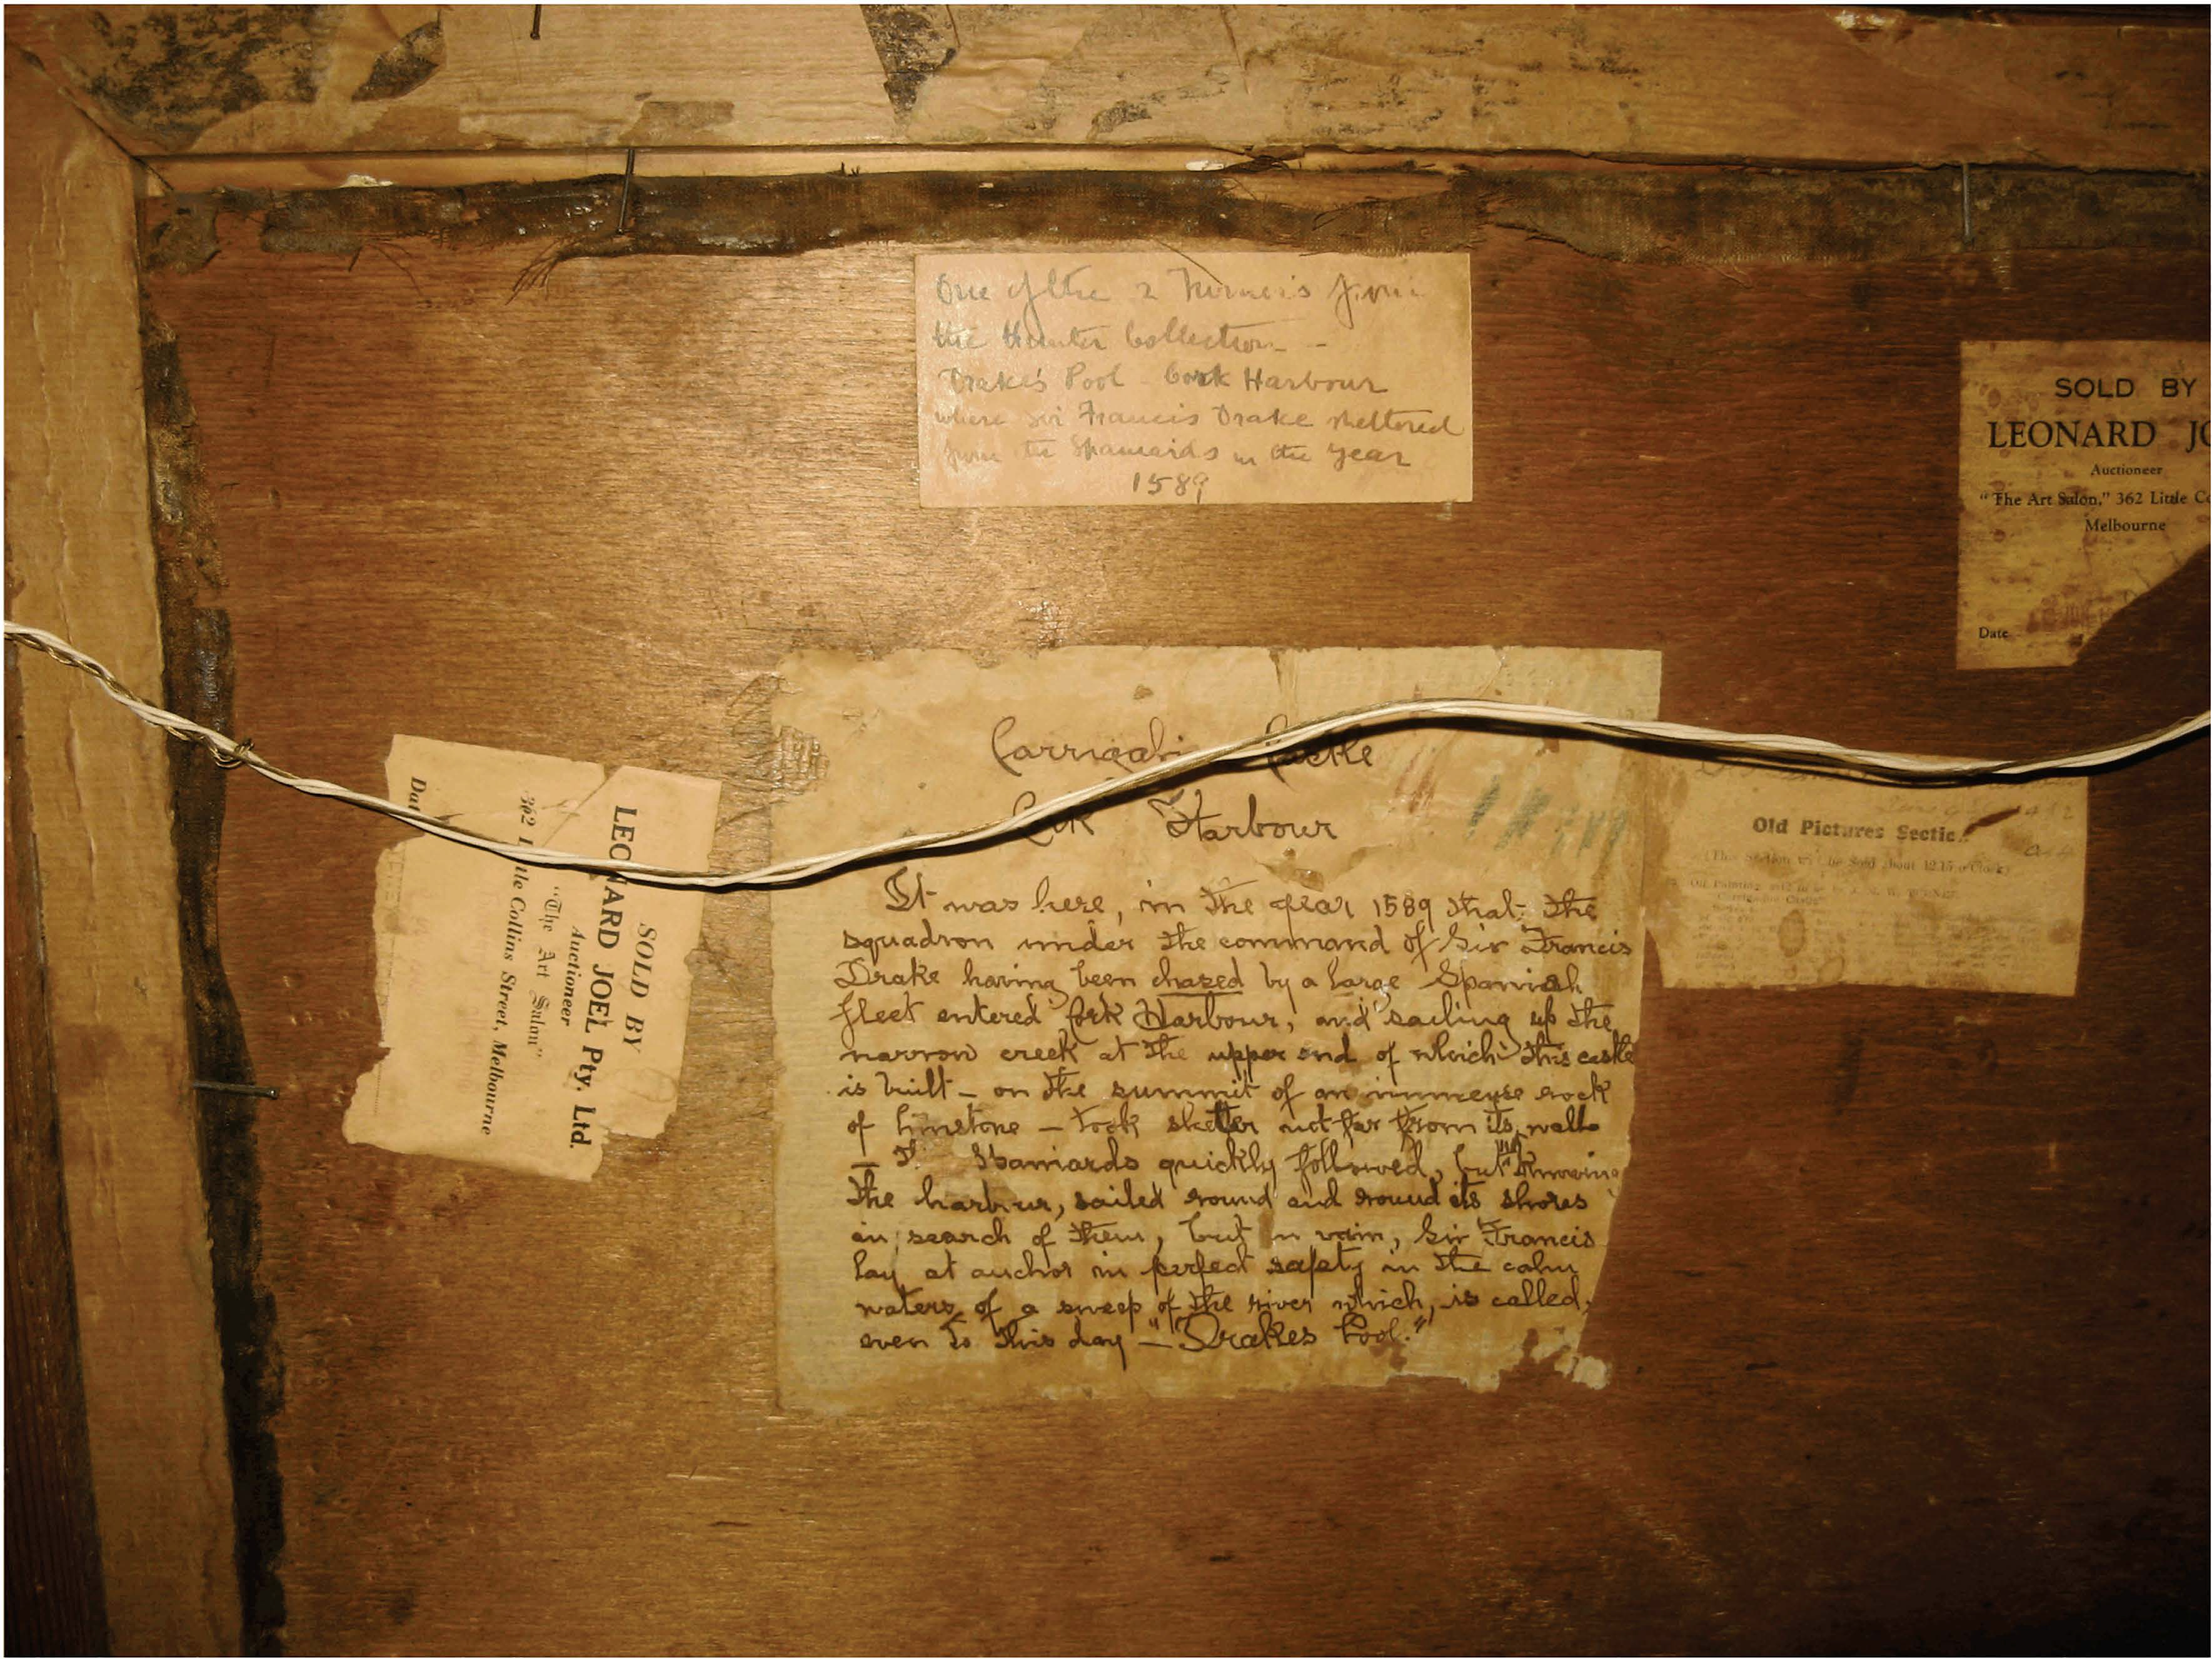 One of the 2 Turner's from
the Hunter Collection -
Drake's Pool - Cork Harbour
where Sir Francis Drake sheltered
from the Spaniards in the year
1589
SOLD BY
LEONARD JO
Auctioneer
"The Art Salon," 362 Little Co
Melbourne
Date
SOLD BY
LEONARD JOEL Pty. Ltd.
Auctioneer
"The Art Salon"
362 Little Collins Street, Melbourne
Dat
Castle
Harbour
It was here, in the year 1589 that the
squadron under the command of Sir Francis
Drake having been chased by a large Spanish
fleet entered Cork Harbour, and sailing up the
narrow creek at the upper end of which this castle
is built - on the summit of an immense rock
of limstone - took shelter not far from its walls
- Spaniards quickly followed, but knowing
the harbour, sailed round and round its shores
in search of them, but in vain, Sir Francis
lay at anchor in perfect safety in the calm
waters of a sweep of the river which, is called,
even to this day - "Drakes Pool."
Old Pictures Sectio
(This Section will be Sold about 12.15 o'Clock)
Oil Painting